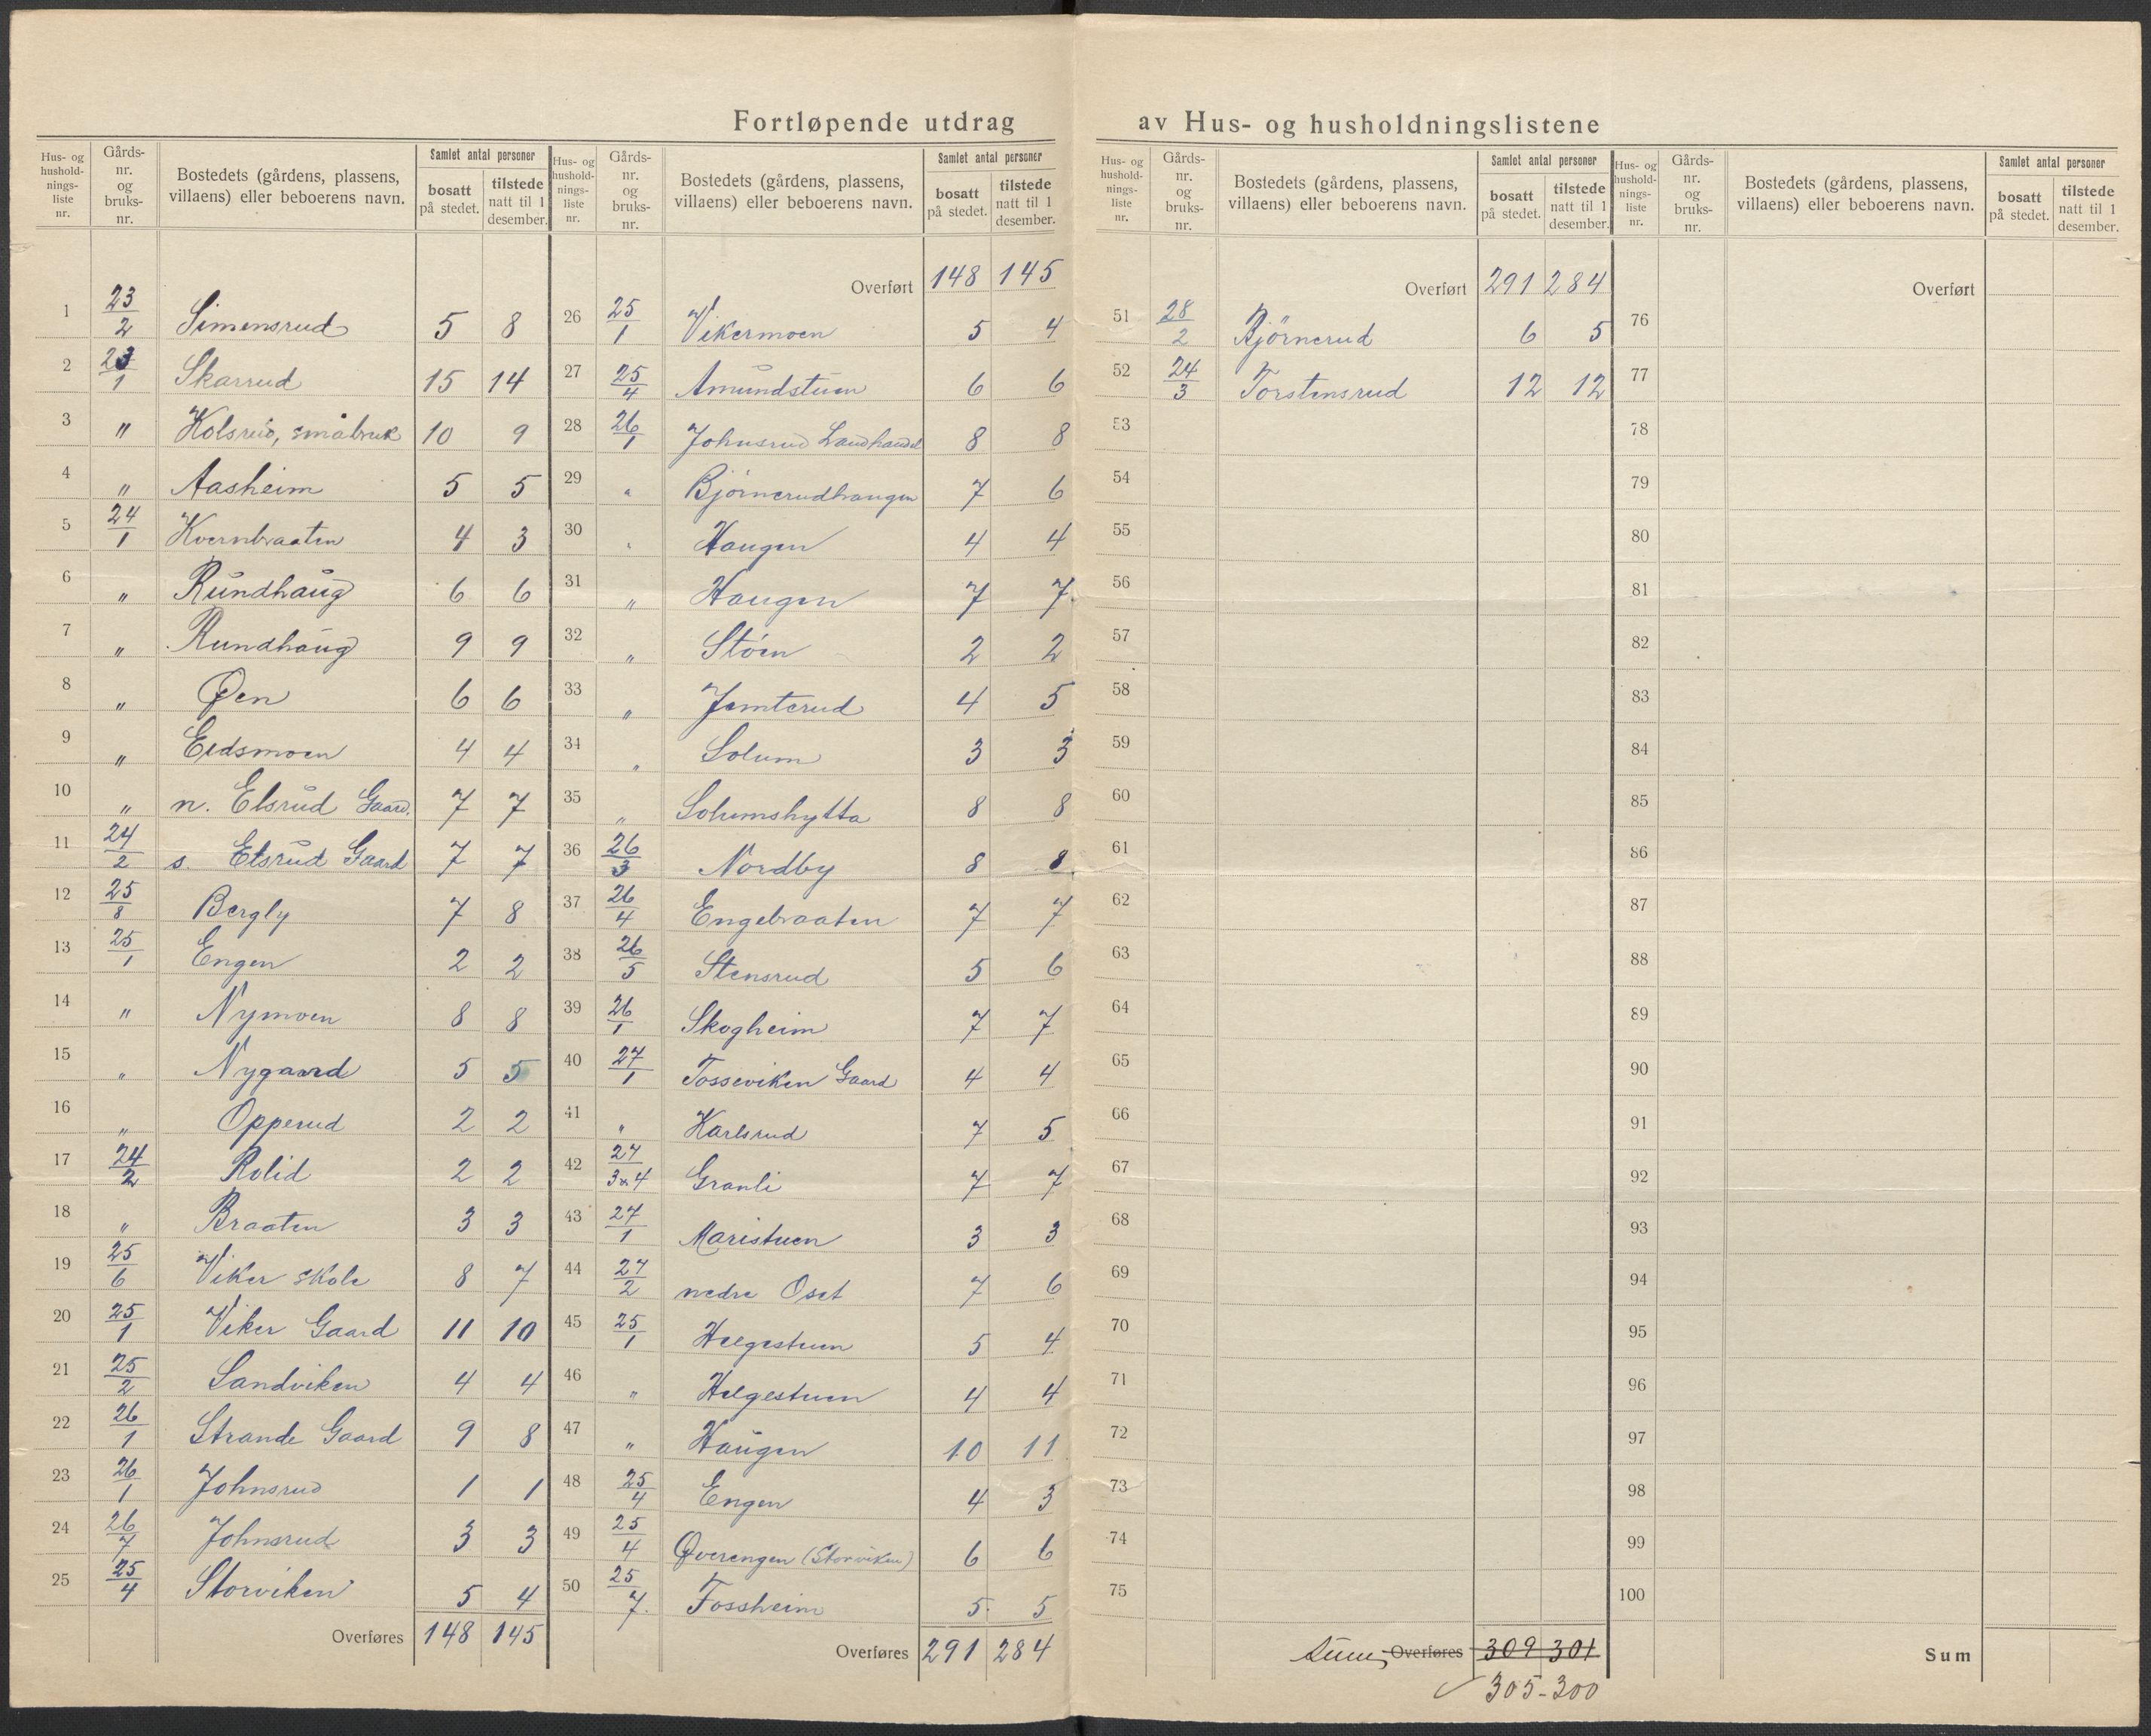 Fortløpende utdrag av Hus- og husholdningslistene
Hus- og hushold-nings-liste nr. | Gårds-nr. og bruks-nr. | Bostedets (gårdens, plassens, villaens) eller beboerens navn. | Samlet antal personer | bosatt på stedet. | tilstede natt til 1 desember.
1 23/2 Simensrud 5 8
2 23/1 Skarrud 15 14
3 " Kolsrud, småbruk 10 9
4 " Aasheim 5 5
5 24/1 Kvernbraaten 4 3
6 " Rundhaug 6 6
7 " Rundhaug 9 9
8 " Øen 6 6
9 " Eidsmoen 4 4
10 " n. Elsrud Gaard. 7 7
11 24/2 s. Elsrud Gaard 7 7
12 25/8 Bergly 7 8
13 25/1 Engen 2 2
14 " Nymoen 8 8
15 " Nygaard 5 5
16 " Opperud 2 2
17 24/2 Rolid 2 2
18 " Braaten 3 3
19 25/6 Viker skole 8 7
20 25/1 Viker Gaard 11 10
21 25/2 Sandviken 4 4
22 26/1 Strande Gaard 9 8
23 26/1 Johnsrud 1 1
24 26/7 Johnsrud 3 3
25 25/4 Storviken 5 4
Overføres 148 145
Hus- og hushold-nings-liste nr. | Gårds-nr. og bruks-nr. | Bostedets (gårdens, plassens, villaens) eller beboerens navn. | Samlet antal personer | bosatt på stedet. | tilstede natt til 1 desember.
Overført 148 145
26 25/1 Vikermoen 5 4
27 25/4 Amundstuen 6 6
28 26/1 Johnsrud Landhandel 8 8
29 " Bjørnerudhaugen 7 6
30 " Haugen 4 4
31 " Haugen 7 7
32 " Støen 2 2
33 " Jamterud 4 5
34 " Solum 3 3
35 " Solumshytta 8 8
36 26/3 Nordby 8 8
37 26/4 Engebraaten 7 7
38 26/5 Stensrud 5 6
39 26/1 Skogheim 7 7
40 27/1 Tosseviken Gaard 4 4
41 " Karlsrud 7 5
42 27/3&4 Granli 7 7
43 27/1 Maristuen 3 3
44 27/2 nedre Oset 7 6
45 25/1 Helgestuen 5 4
46 " Helgestuen 4 4
47 " Haugen 10 11
48 25/4 Engen 4 3
49 25/4 Øverengen (Storviken) 6 6
50 25/7. Fossheim 5 5
Overføres 291 284
Hus- og hushold-nings-liste nr. | Gårds-nr. og bruks-nr. | Bostedets (gårdens, plassens, villaens) eller beboerens navn. | Samlet antal personer | bosatt på stedet. | tilstede natt til 1 desember.
Overført 291 284
51 28/2 Bjørnerud 6 5
52 24/3 Torstensrud 12 12
53
54
55
56
57
58
59
60
61
62
63
64
65
66
67
68
69
70
71
72
73
74
75
Sum Overføres 309 301
305-300
Hus- og hushold-nings-liste nr. | Gårds-nr. og bruks-nr. | Bostedets (gårdens, plassens, villaens) eller beboerens navn. | Samlet antal personer | bosatt på stedet. | tilstede natt til 1 desember.
Overført
76
77
78
79
80
81
82
83
84
85
86
87
88
89
90
91
92
93
94
95
96
97
98
99
100
Sum